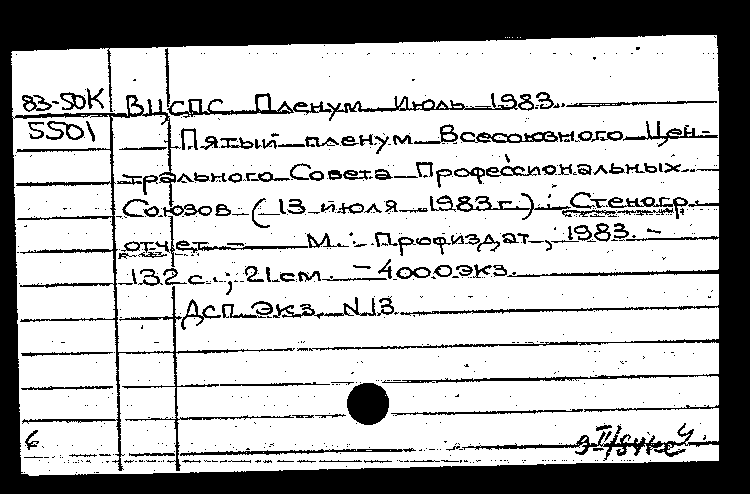 83-50К ВЦСПС Пленум. Июль 1983.
5501 Пятый пленум Всесоюзного Цен-
трального Совета Профессиональных
Союзов (13 июля 1983 г.): Стеногр.
отчет. – М.: Профиздат, 1983. –
132 с.; 21 см. – 4000 экз.
Дсп Экз. N 13
6